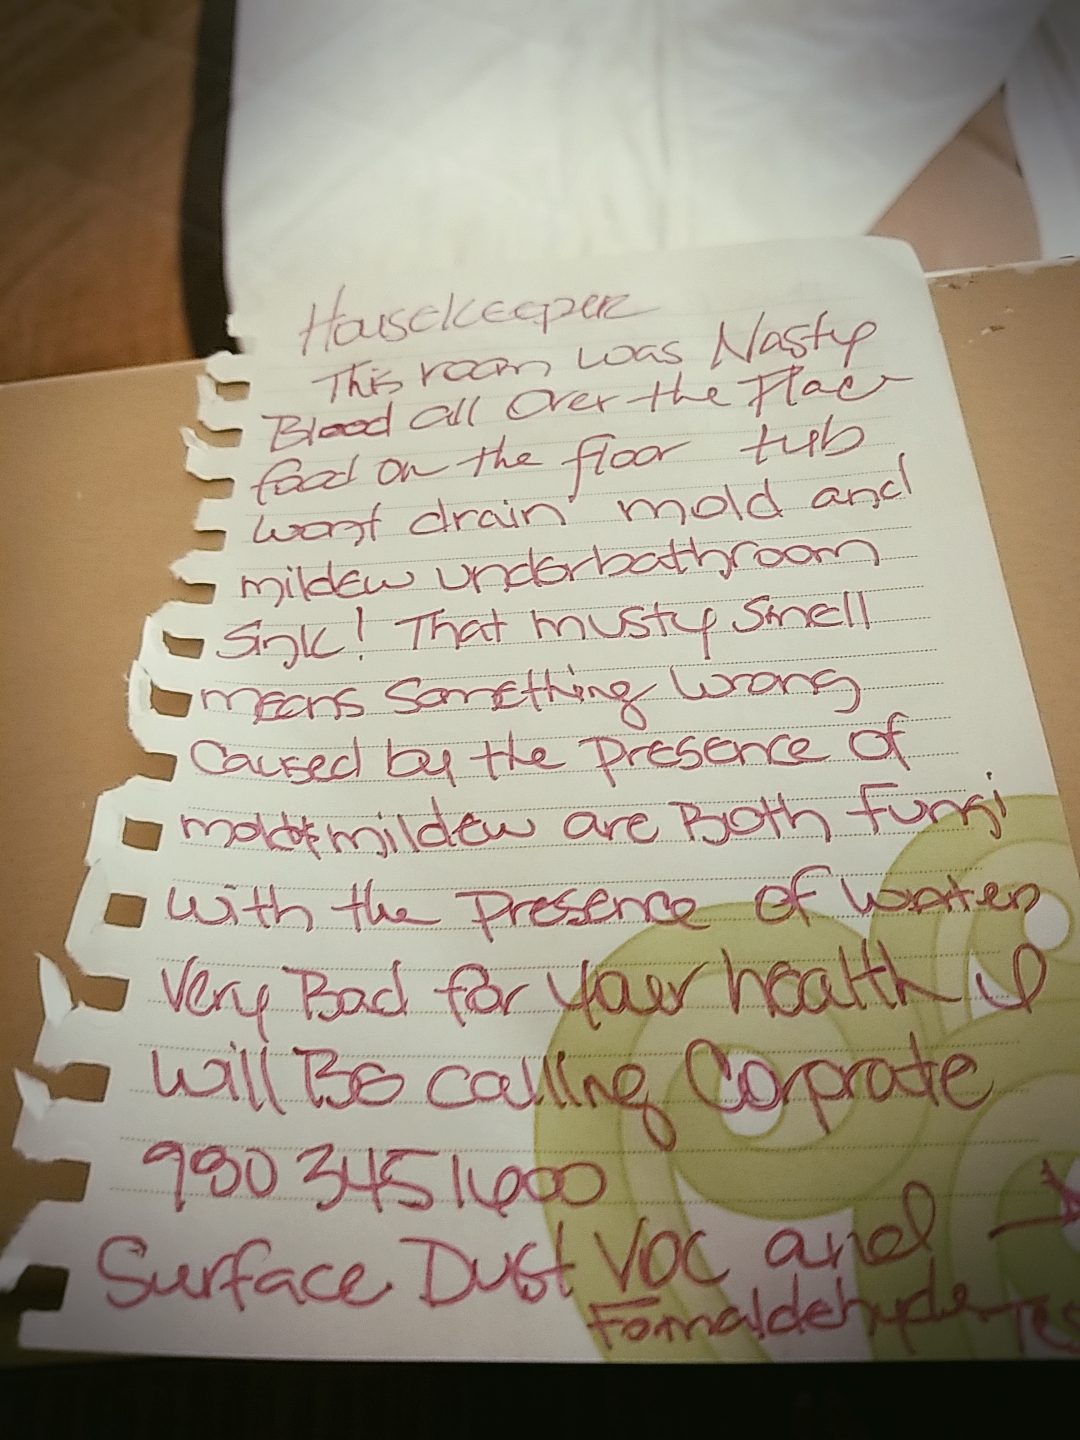 Housekeeper
This room was Nasty
Blood all over the Place
food on the floor tub
wont drain mold and
mildew underbathroom
Sink! That musty smell
means Something wrong
Caused by the presence of
mold & mildew are Both fungi
with the presence of water
Very Bad for your health I
will Be calling Corprate
980 3451600
Surface Dust VOC and
Formaldehyde Tes